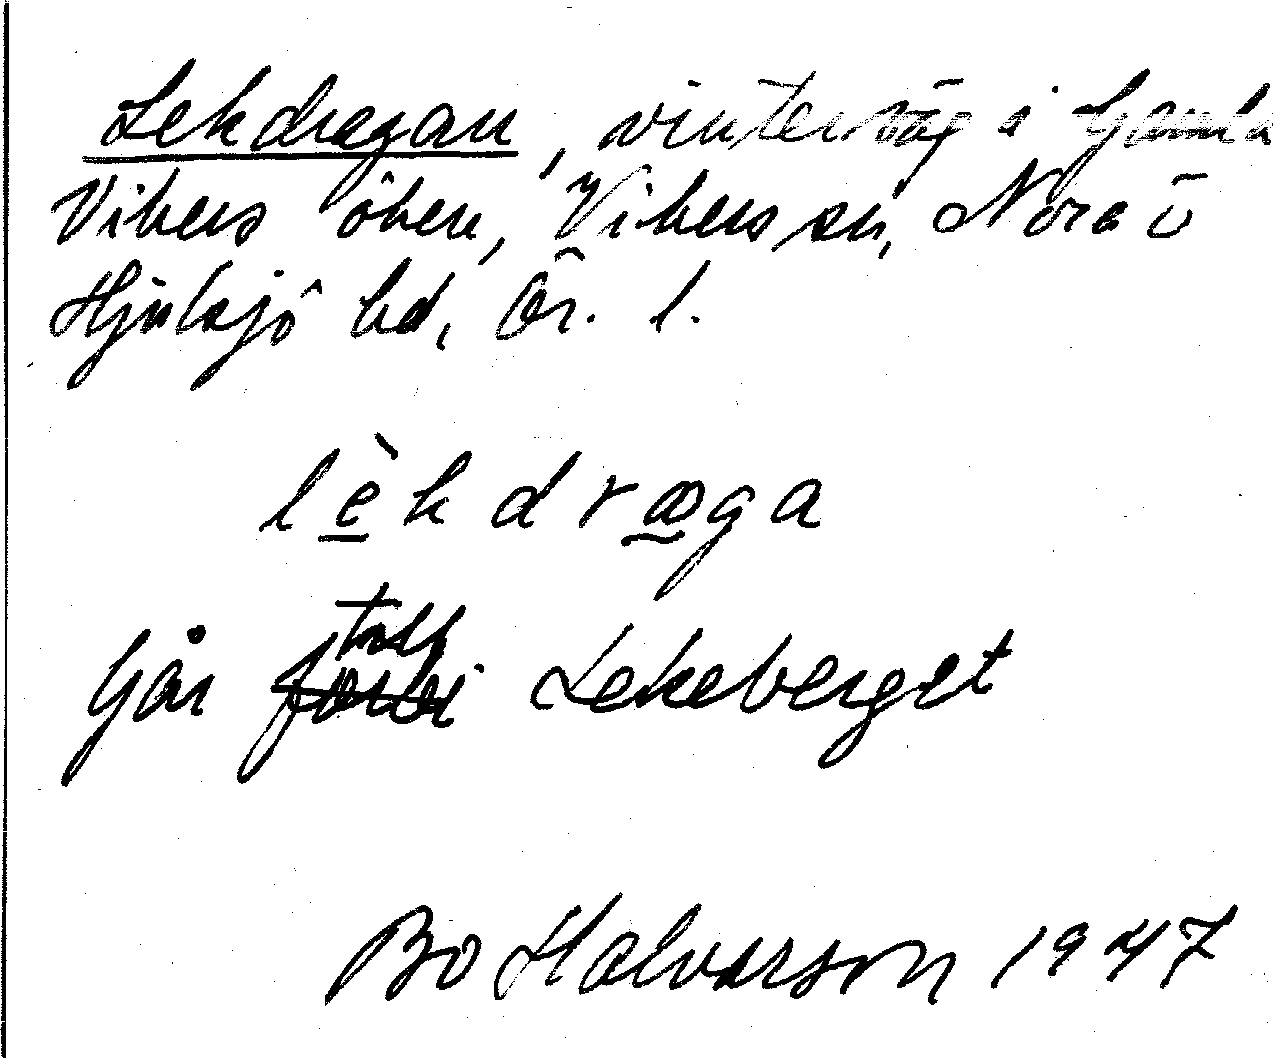 Lekdragan, vinterväg i Gamla
Vikers öken, Vikers sn, Nora o
Hjulsjö bd, Ör. l.
lèkdræga
Går förbi Lekeberget
Bo Halvarson 1947